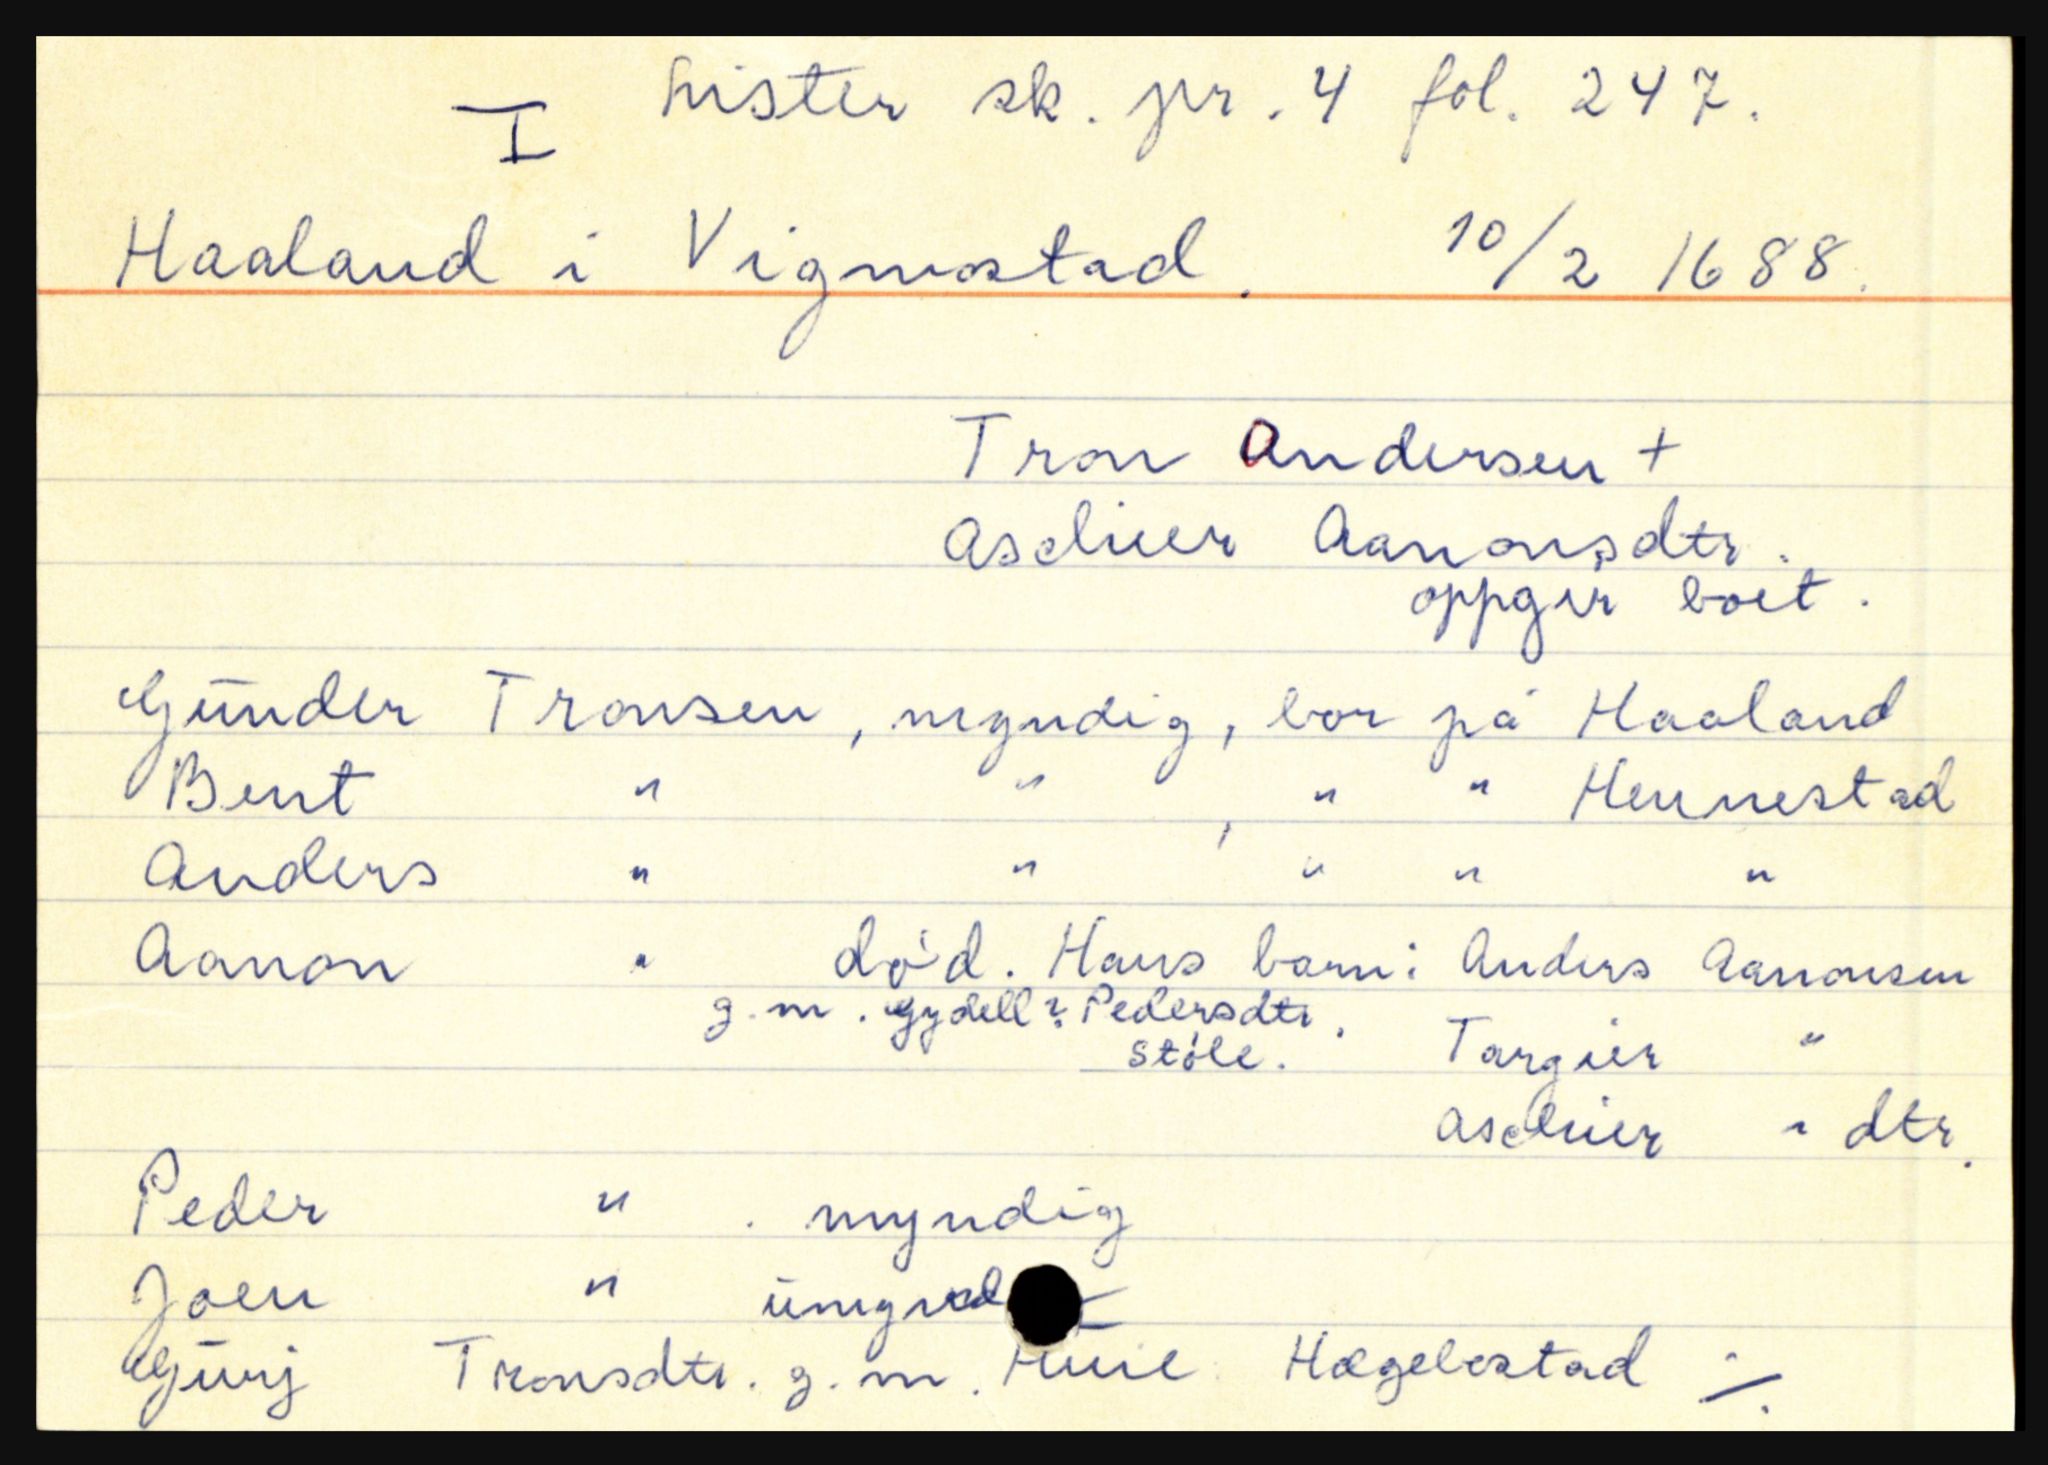 I Lister sk. pr. 4 fol. 247.
Haaland i Vigmostad. 10/2 1688.
Tron Andersen +
Aschier Aanonsdtr.
oppgir boet.
Gunder Tronsen, myndig, bor på Haaland
Bent " " , " " Hennestad
Anders " " " " "
Aanon " død. Hans barn: Anders Aanonsen
g.m. Gydell? Pedersdtr. Targier "
Støle.
Aschier " dtr.
Peder " . myndig
Joen "
Gurj Tronsdtr. g.m. Hægebostad ./.